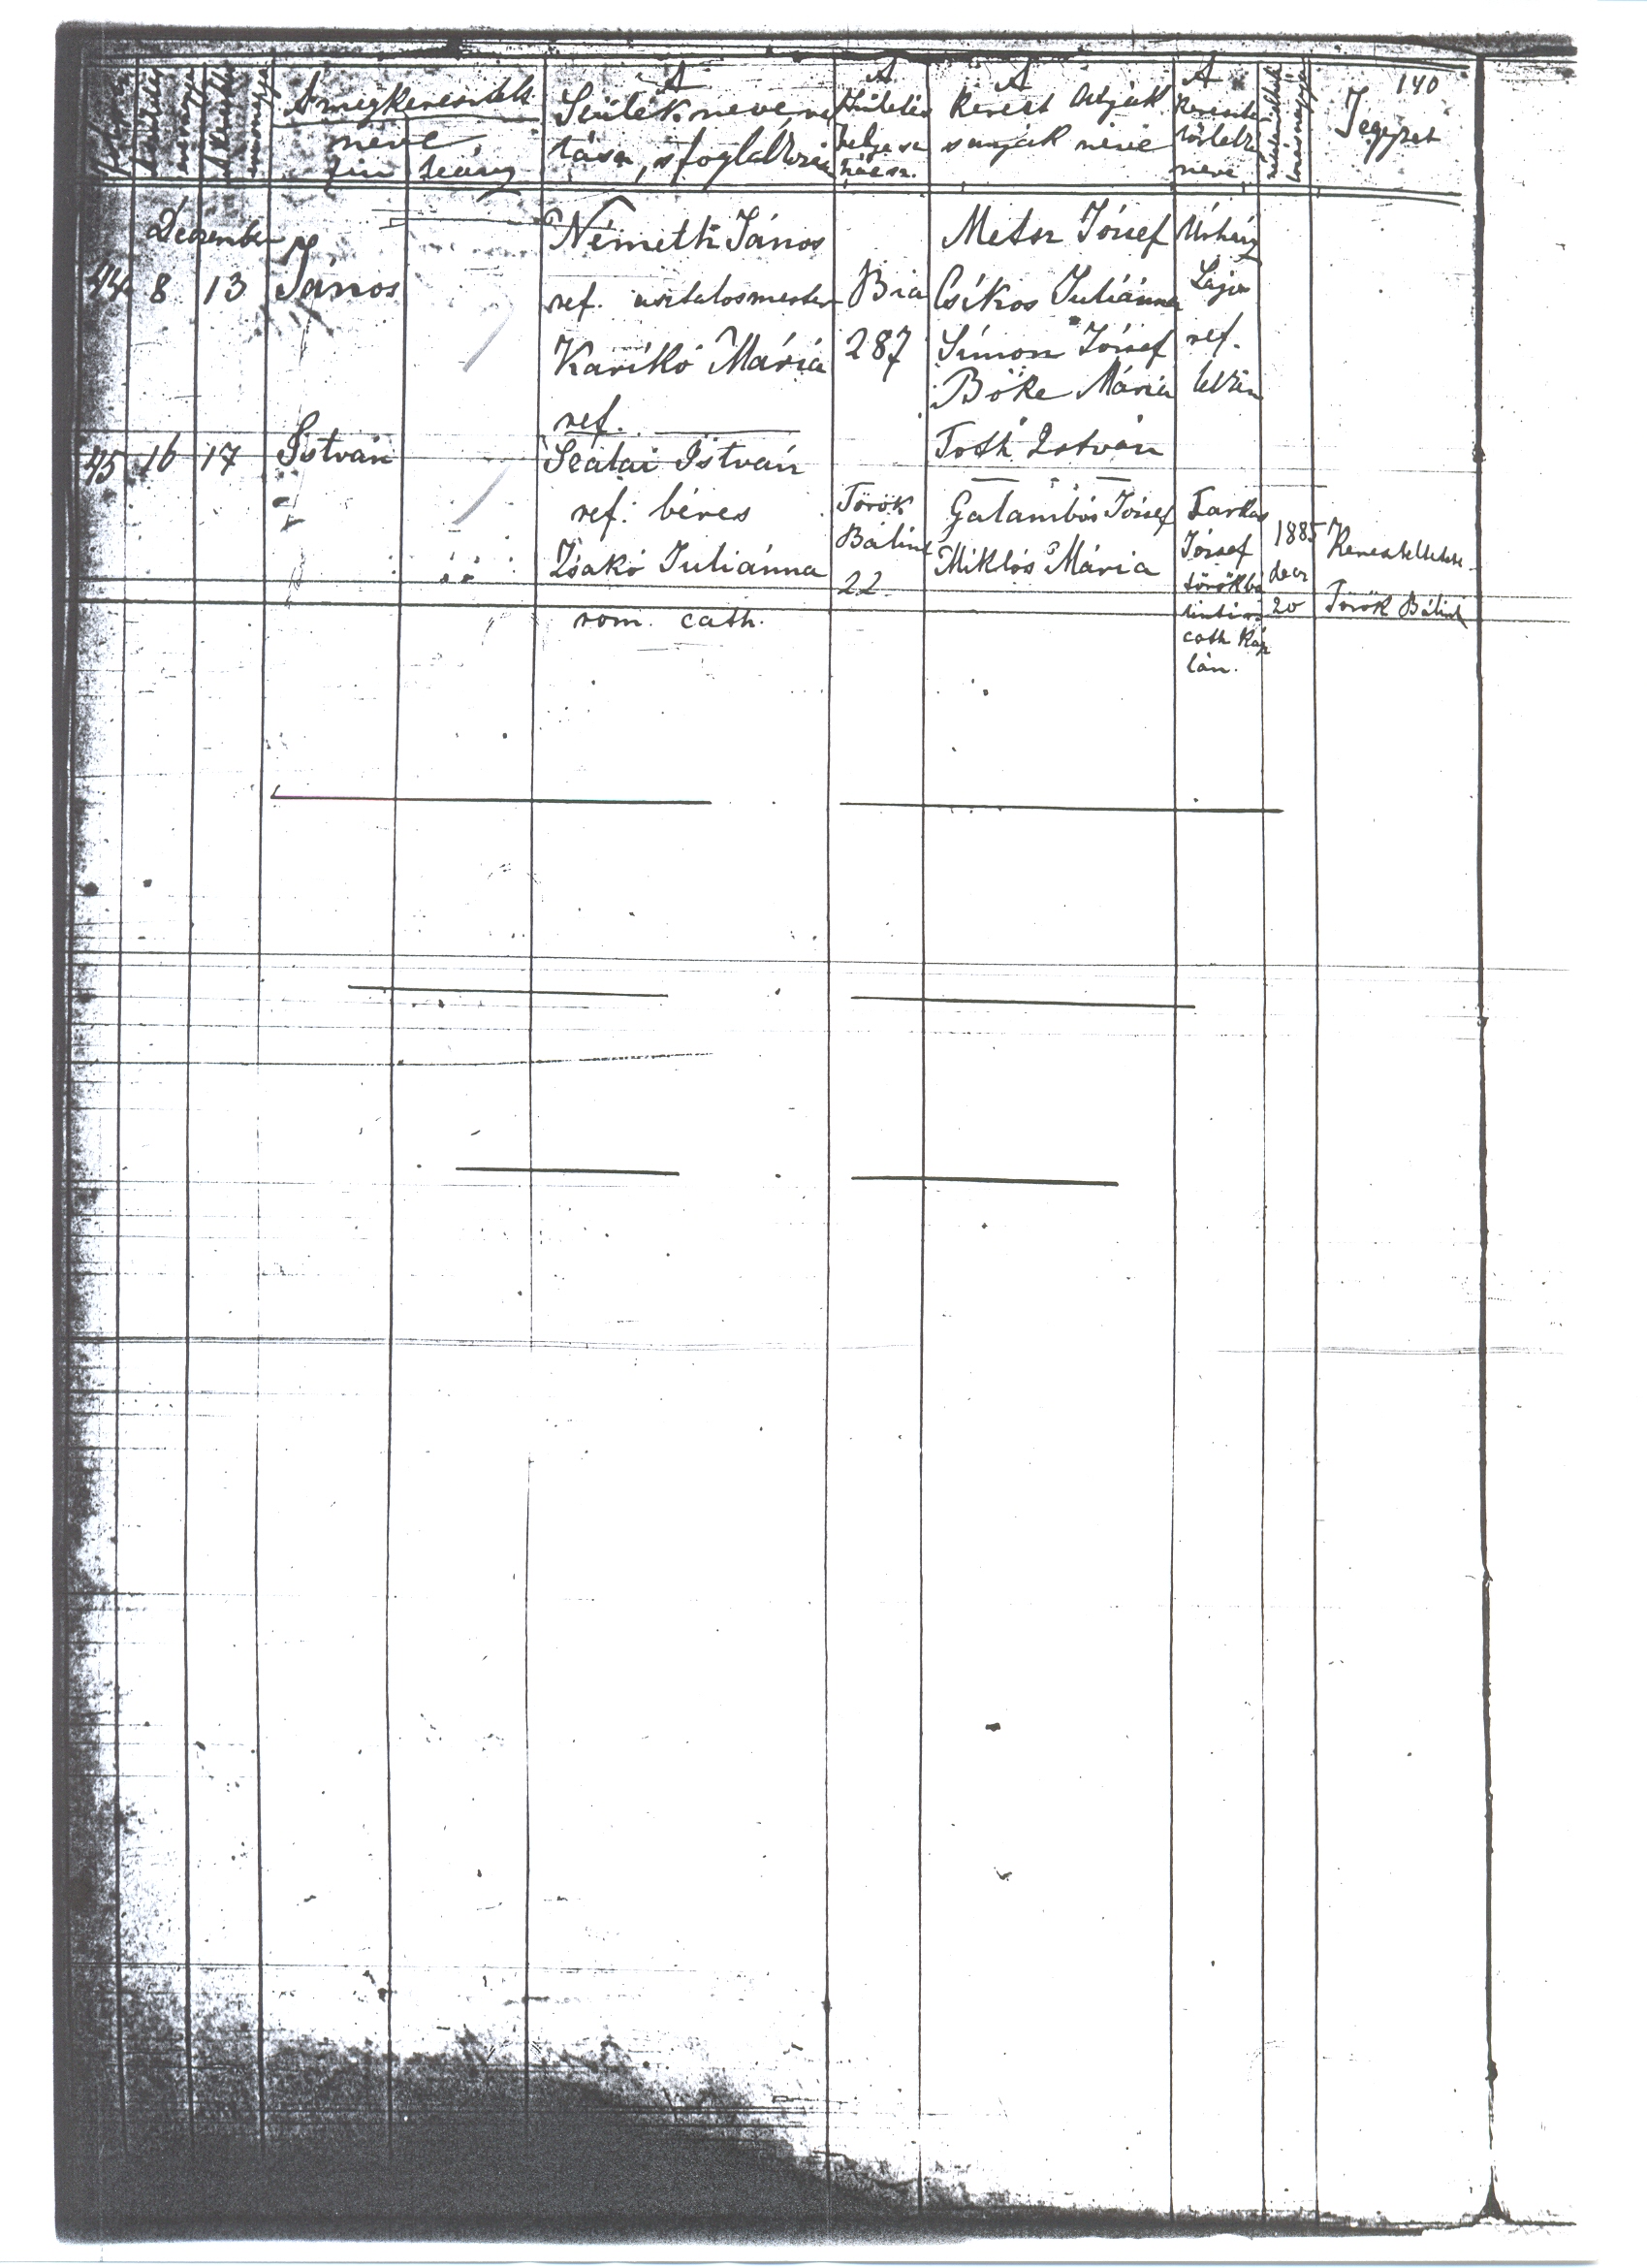 140
A megkereszteltek neve
fiu leány
A Szülék neve, val
lása, s foglalkozása
A Születés helye sz
A Kereszt Atyák
s anyák neve
A Keresz
neve
Jegyzet
Deczember
44 8 13 János
Németh János
ref. asztalosmester
Karikó Mária
ref.
Bia
287
Metsz József
Csíkos Juliánna
Simon József
Bőke Mária
Lajos
ref.
45 16 17 István
Szalai István
ref. béres
Zsakó Juliánna
rom. cath.
Török
Bálint
22
Tóth István
Galambos József
Miklós Mária
Farkas
József
törökbá
linti r.
cath káp
lán.
1885
decz
20
Kereszteltetett
Török Bálint